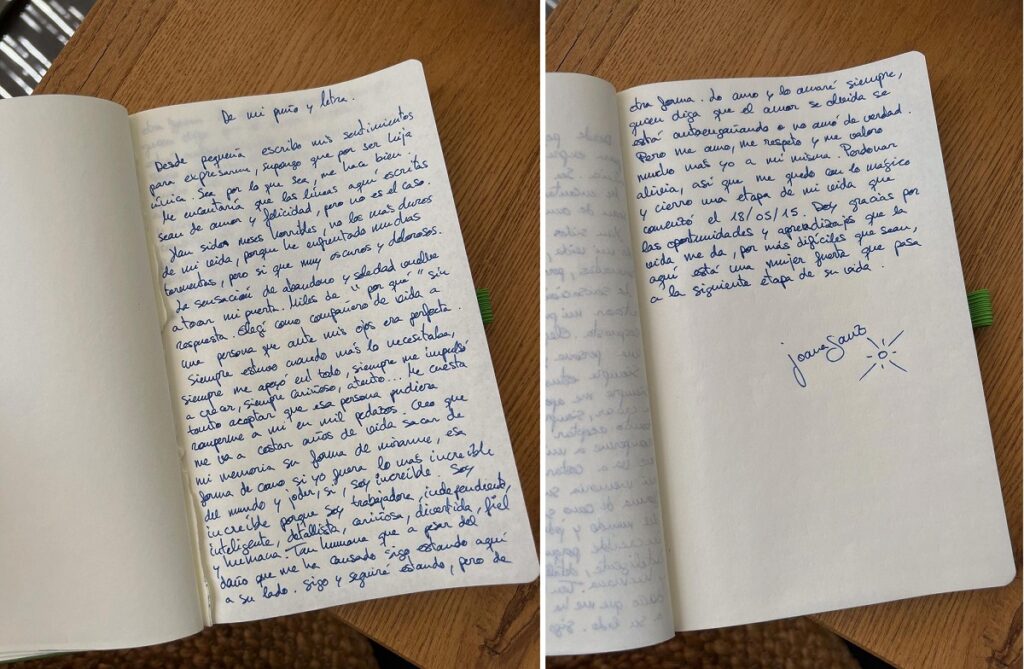 De mi puño y letra.
Desde pequeña escribo mis sentimientos
para expresarme, supongo que por ser hija
única. Sea por lo que sea, me hace bien.
Me encantaría que las líneas aquí escritas
sean de amor y felicidad, pero no es el caso.
Han sidos meses horribles, no los mas duros
de mi vida, porque he enfrentado muchas
tormentas, pero si que muy oscuros y dolorosos.
La sensación de abandono y soledad vuelve
a tocar mi puerta. Miles de "por qué" sin
respuesta. Elegí como compañero de vida a
una persona que ante mis ojos era perfecta.
Siempre estuvo cuando más lo necesitaba,
siempre me apoyó en todo, siempre me impulsó
a crear, siempre cariñoso, atento... Me cuesta
tanto aceptar que esa persona pudiera
romperme a mi en mil pedazos. Creo que
me va a costar años de vida sacar de
mi memoria su forma de mirarme, esa
forma de como si yo fuera lo mas increíble
del mundo y joder, si, soy increíble. Soy
increíble porque soy trabajadora, independiente,
inteligente, detallista, cariñosa, divertida, fiel
y humana. Tan humana que a pesar del
daño que me ha causado sigo estando aquí
a su lado. Sigo y seguiré estando, pero de
otra forma. Lo amo y lo amaré siempre,
quien diga que el amor se olvida se
está autoengañando o no amó de verdad.
Pero me amo, me respeto y me valoro
mucho mas yo a mi misma. Perdonar
alivia, así que me quedo con lo mágico
y cierro una etapa de mi vida que
comenzó el 18/05/15. Doy gracias por
las oportunidades y aprendizajes que la
vida me da, por más difíciles que sean,
aquí está una mujer fuerte que pasa
a la siguiente etapa de su vida.
Joana Sanz